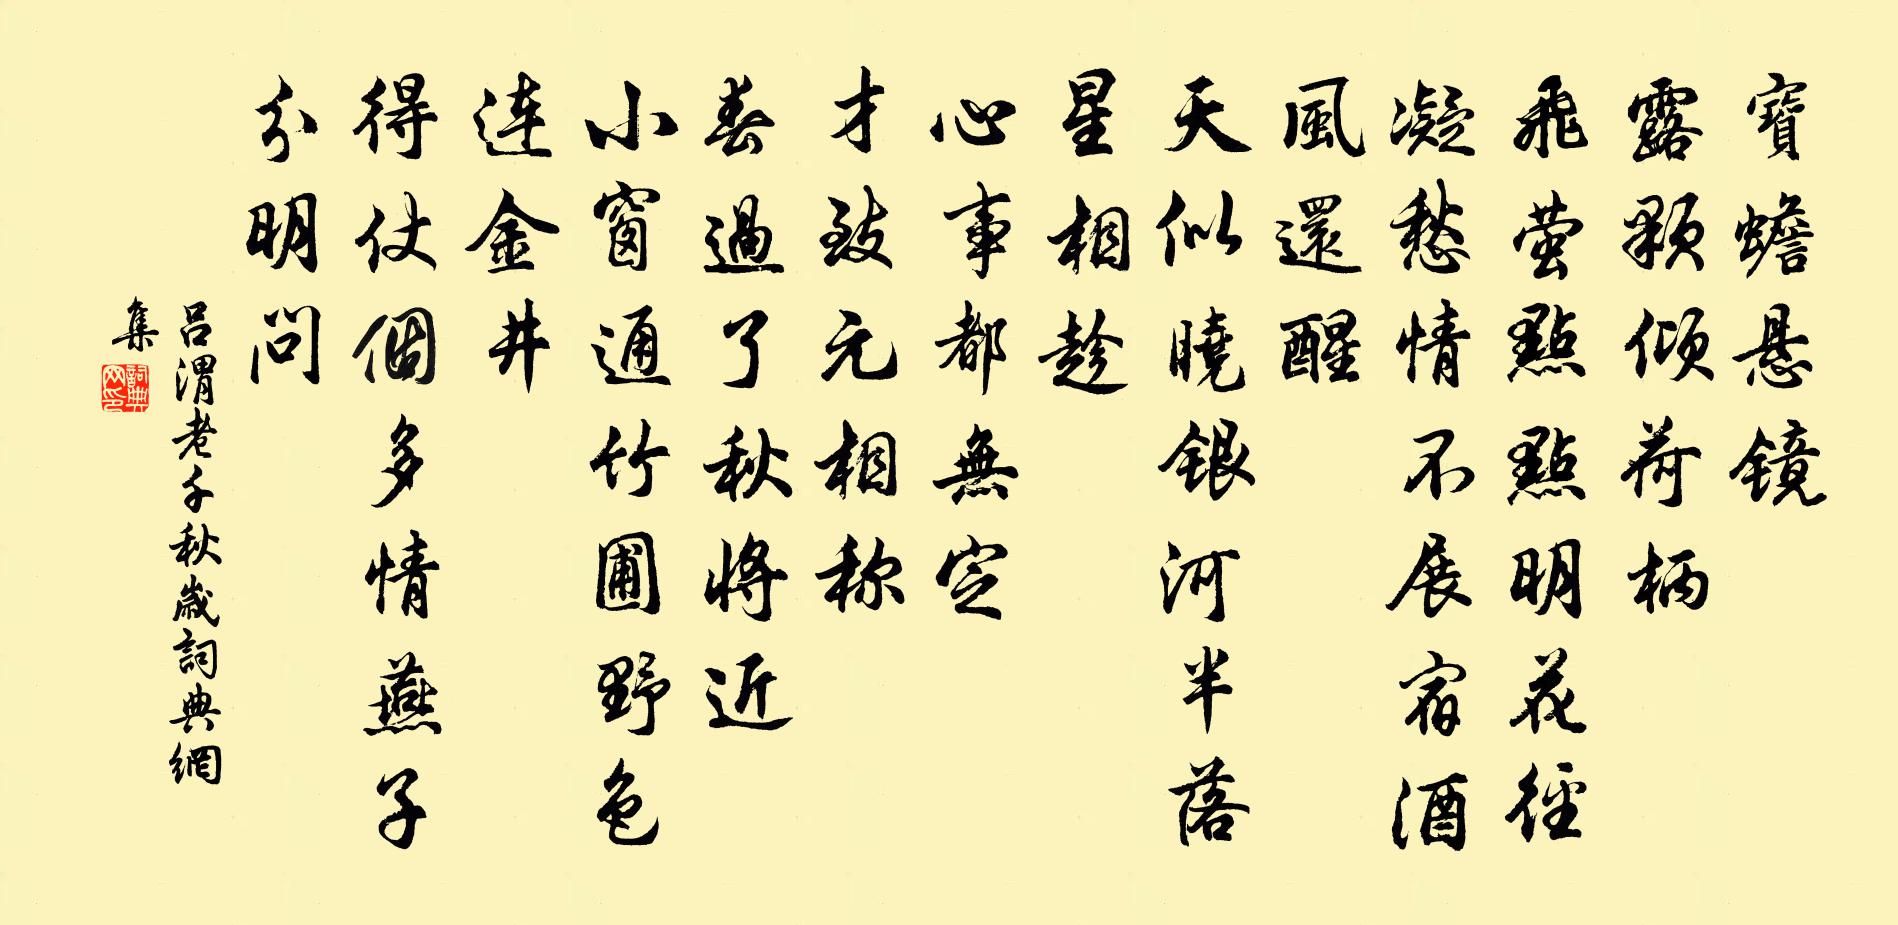 寶蟾悬镜
露颗倾荷柄
飛萤點點明花徑
凝愁情不展宿酒
風還醒
天似曉银河半落
星相趁
心事都無定
才致元相称
春過了秋将近
小窗通竹圃野色
连金井
得仗個多情燕子
分明問
吕渭老千秋歲詞典網
集
詞典
网印